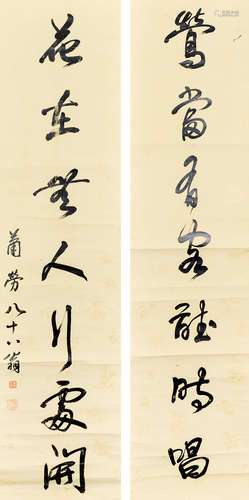 鶯當有客聽時唱
花在無人行處開
蕭勞八十八翁